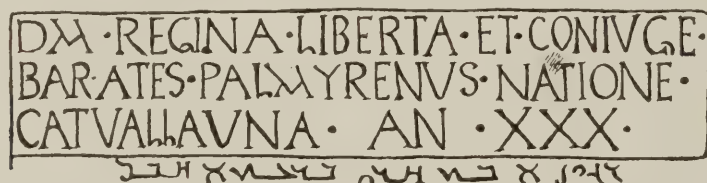 DM · REGINA · LIBERTA · ET · CONIVGE ·
BARATES · PALMYRENVS · NATIONE ·
CATVALLAVNA · AN · XXX ·